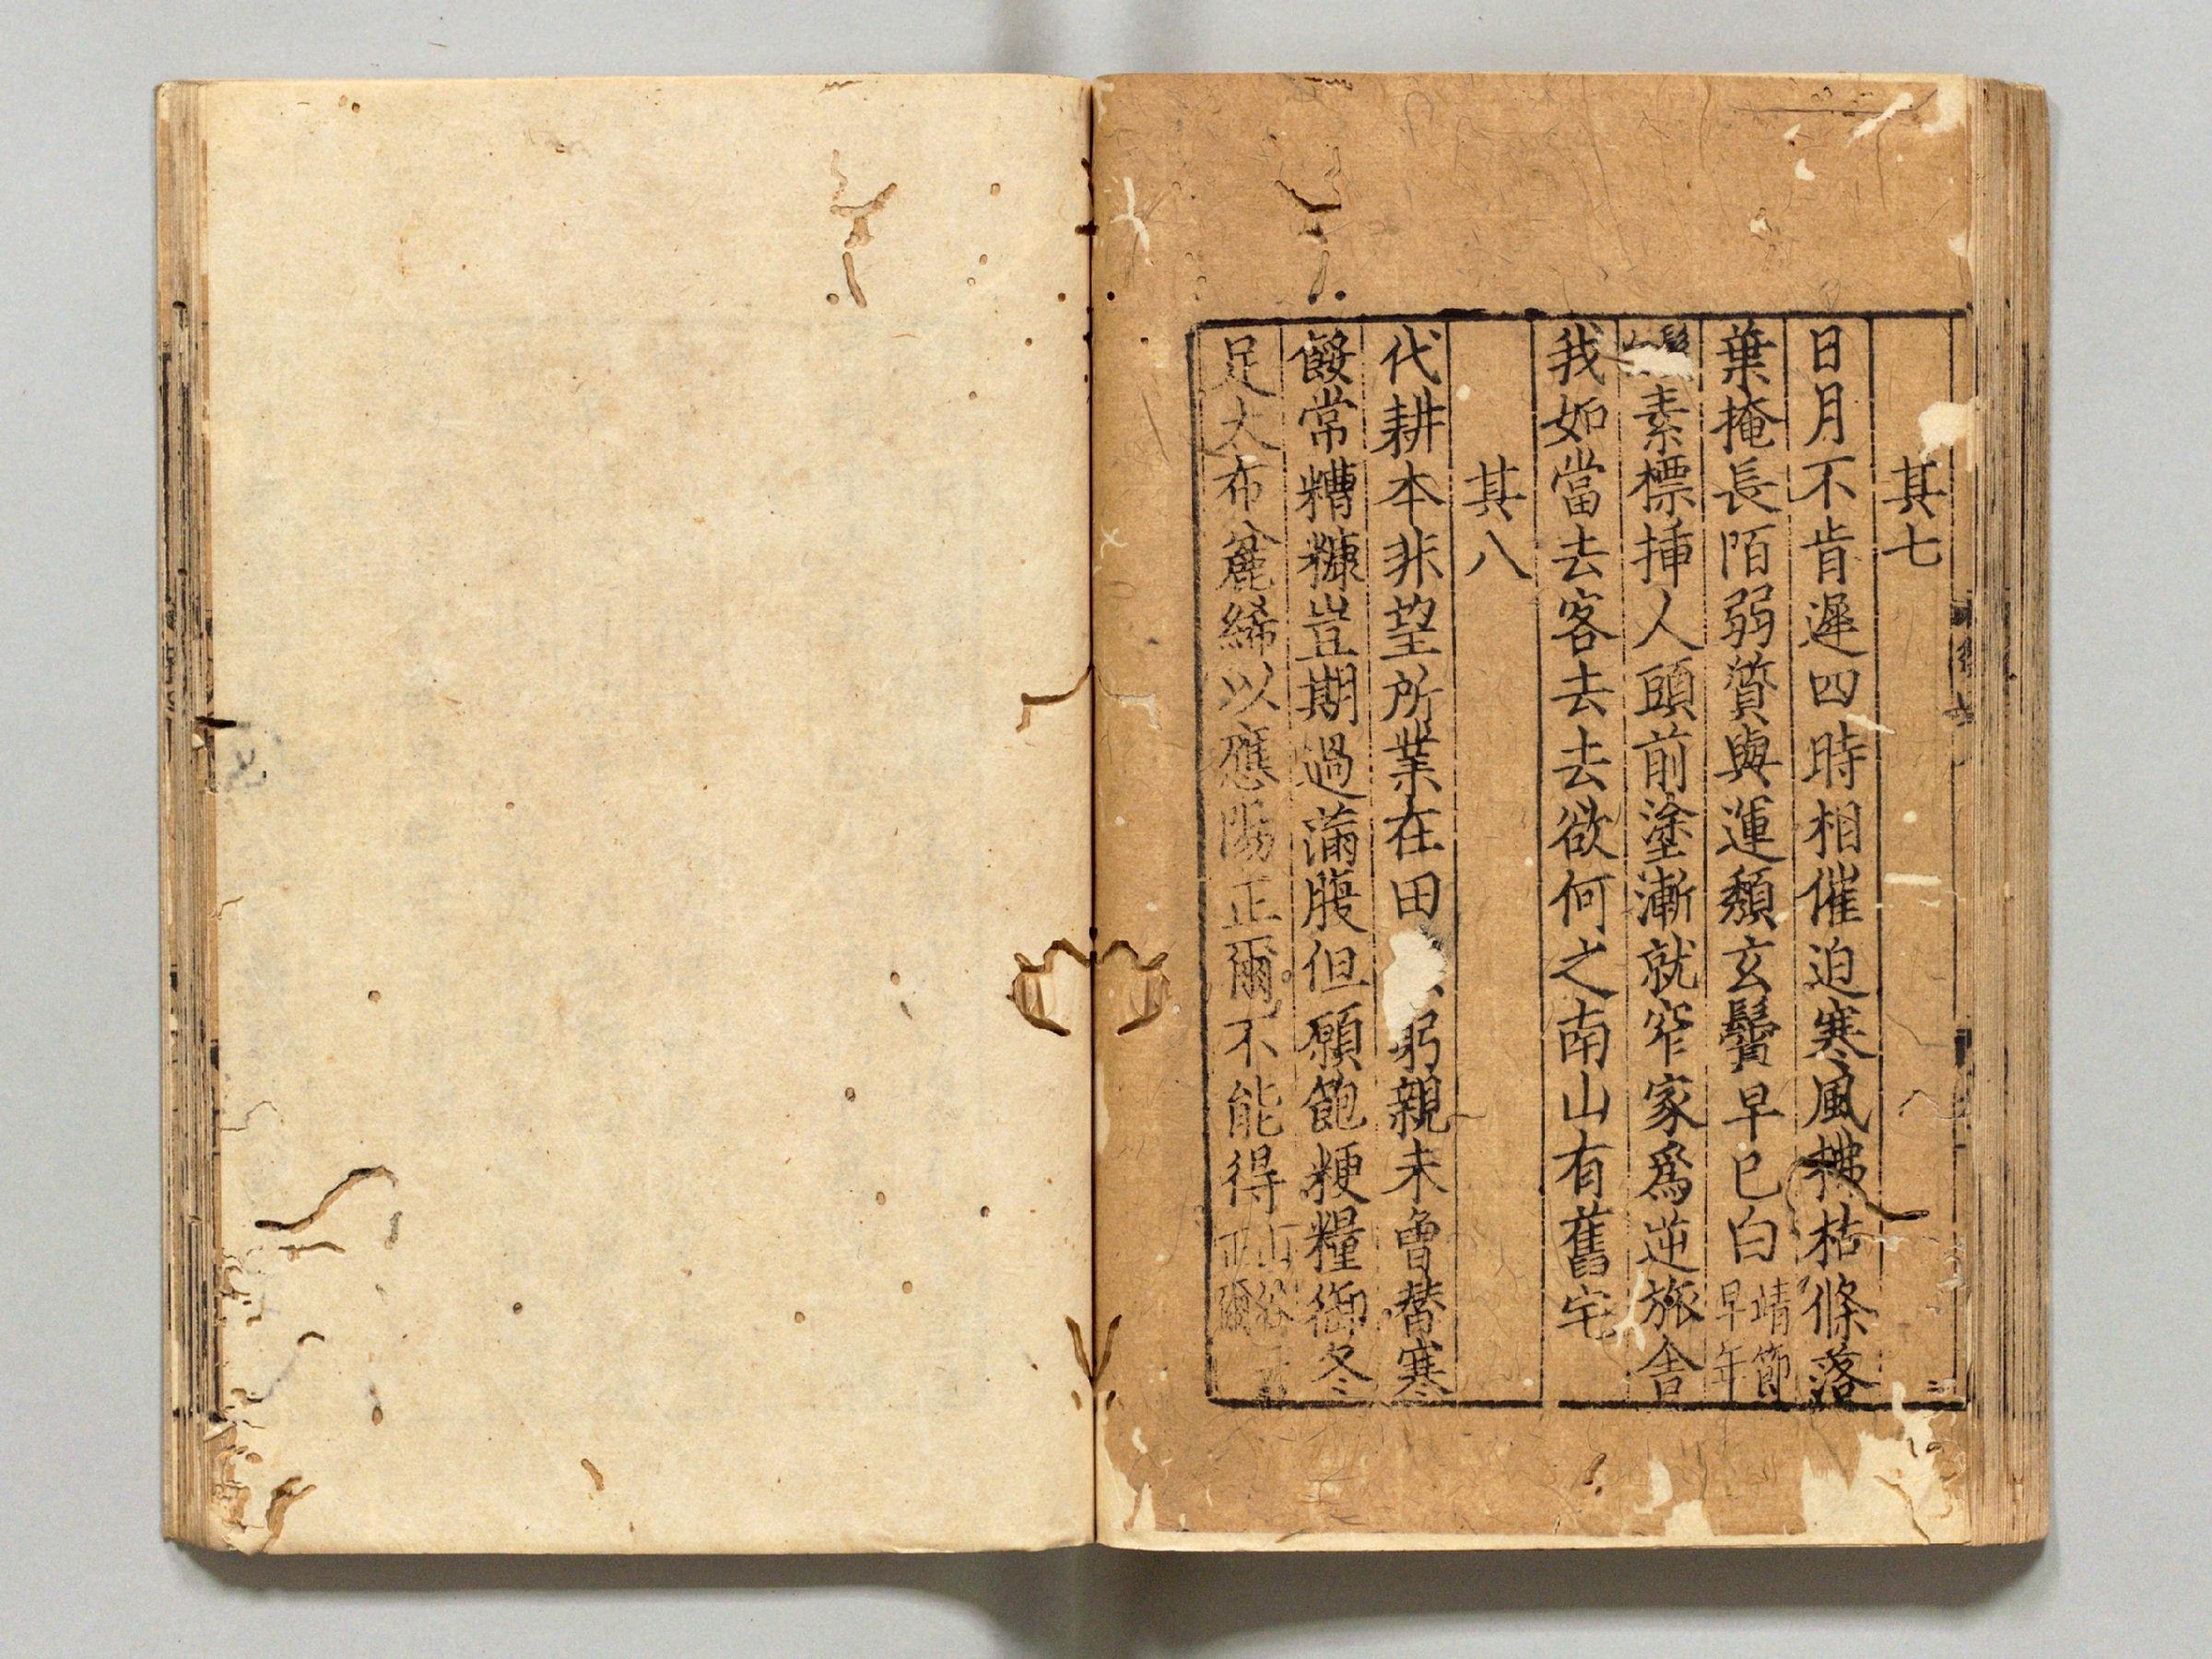 其七
日月不肯遲四時相催迫寒風拂枯條落
葉掩長陌弱質與運頹玄鬢早已白靖節早年
鬢素標揷人頭前塗漸就窄家爲逆旅舎
我如當去客去去欲何之南山有舊宅
其八
代耕本非望所業在田躬親未曾替寒
餒常糟糠豈期過滿腹但願飽粳糧御冬
足大布麄絺以應陽正爾不能得山谷正爾